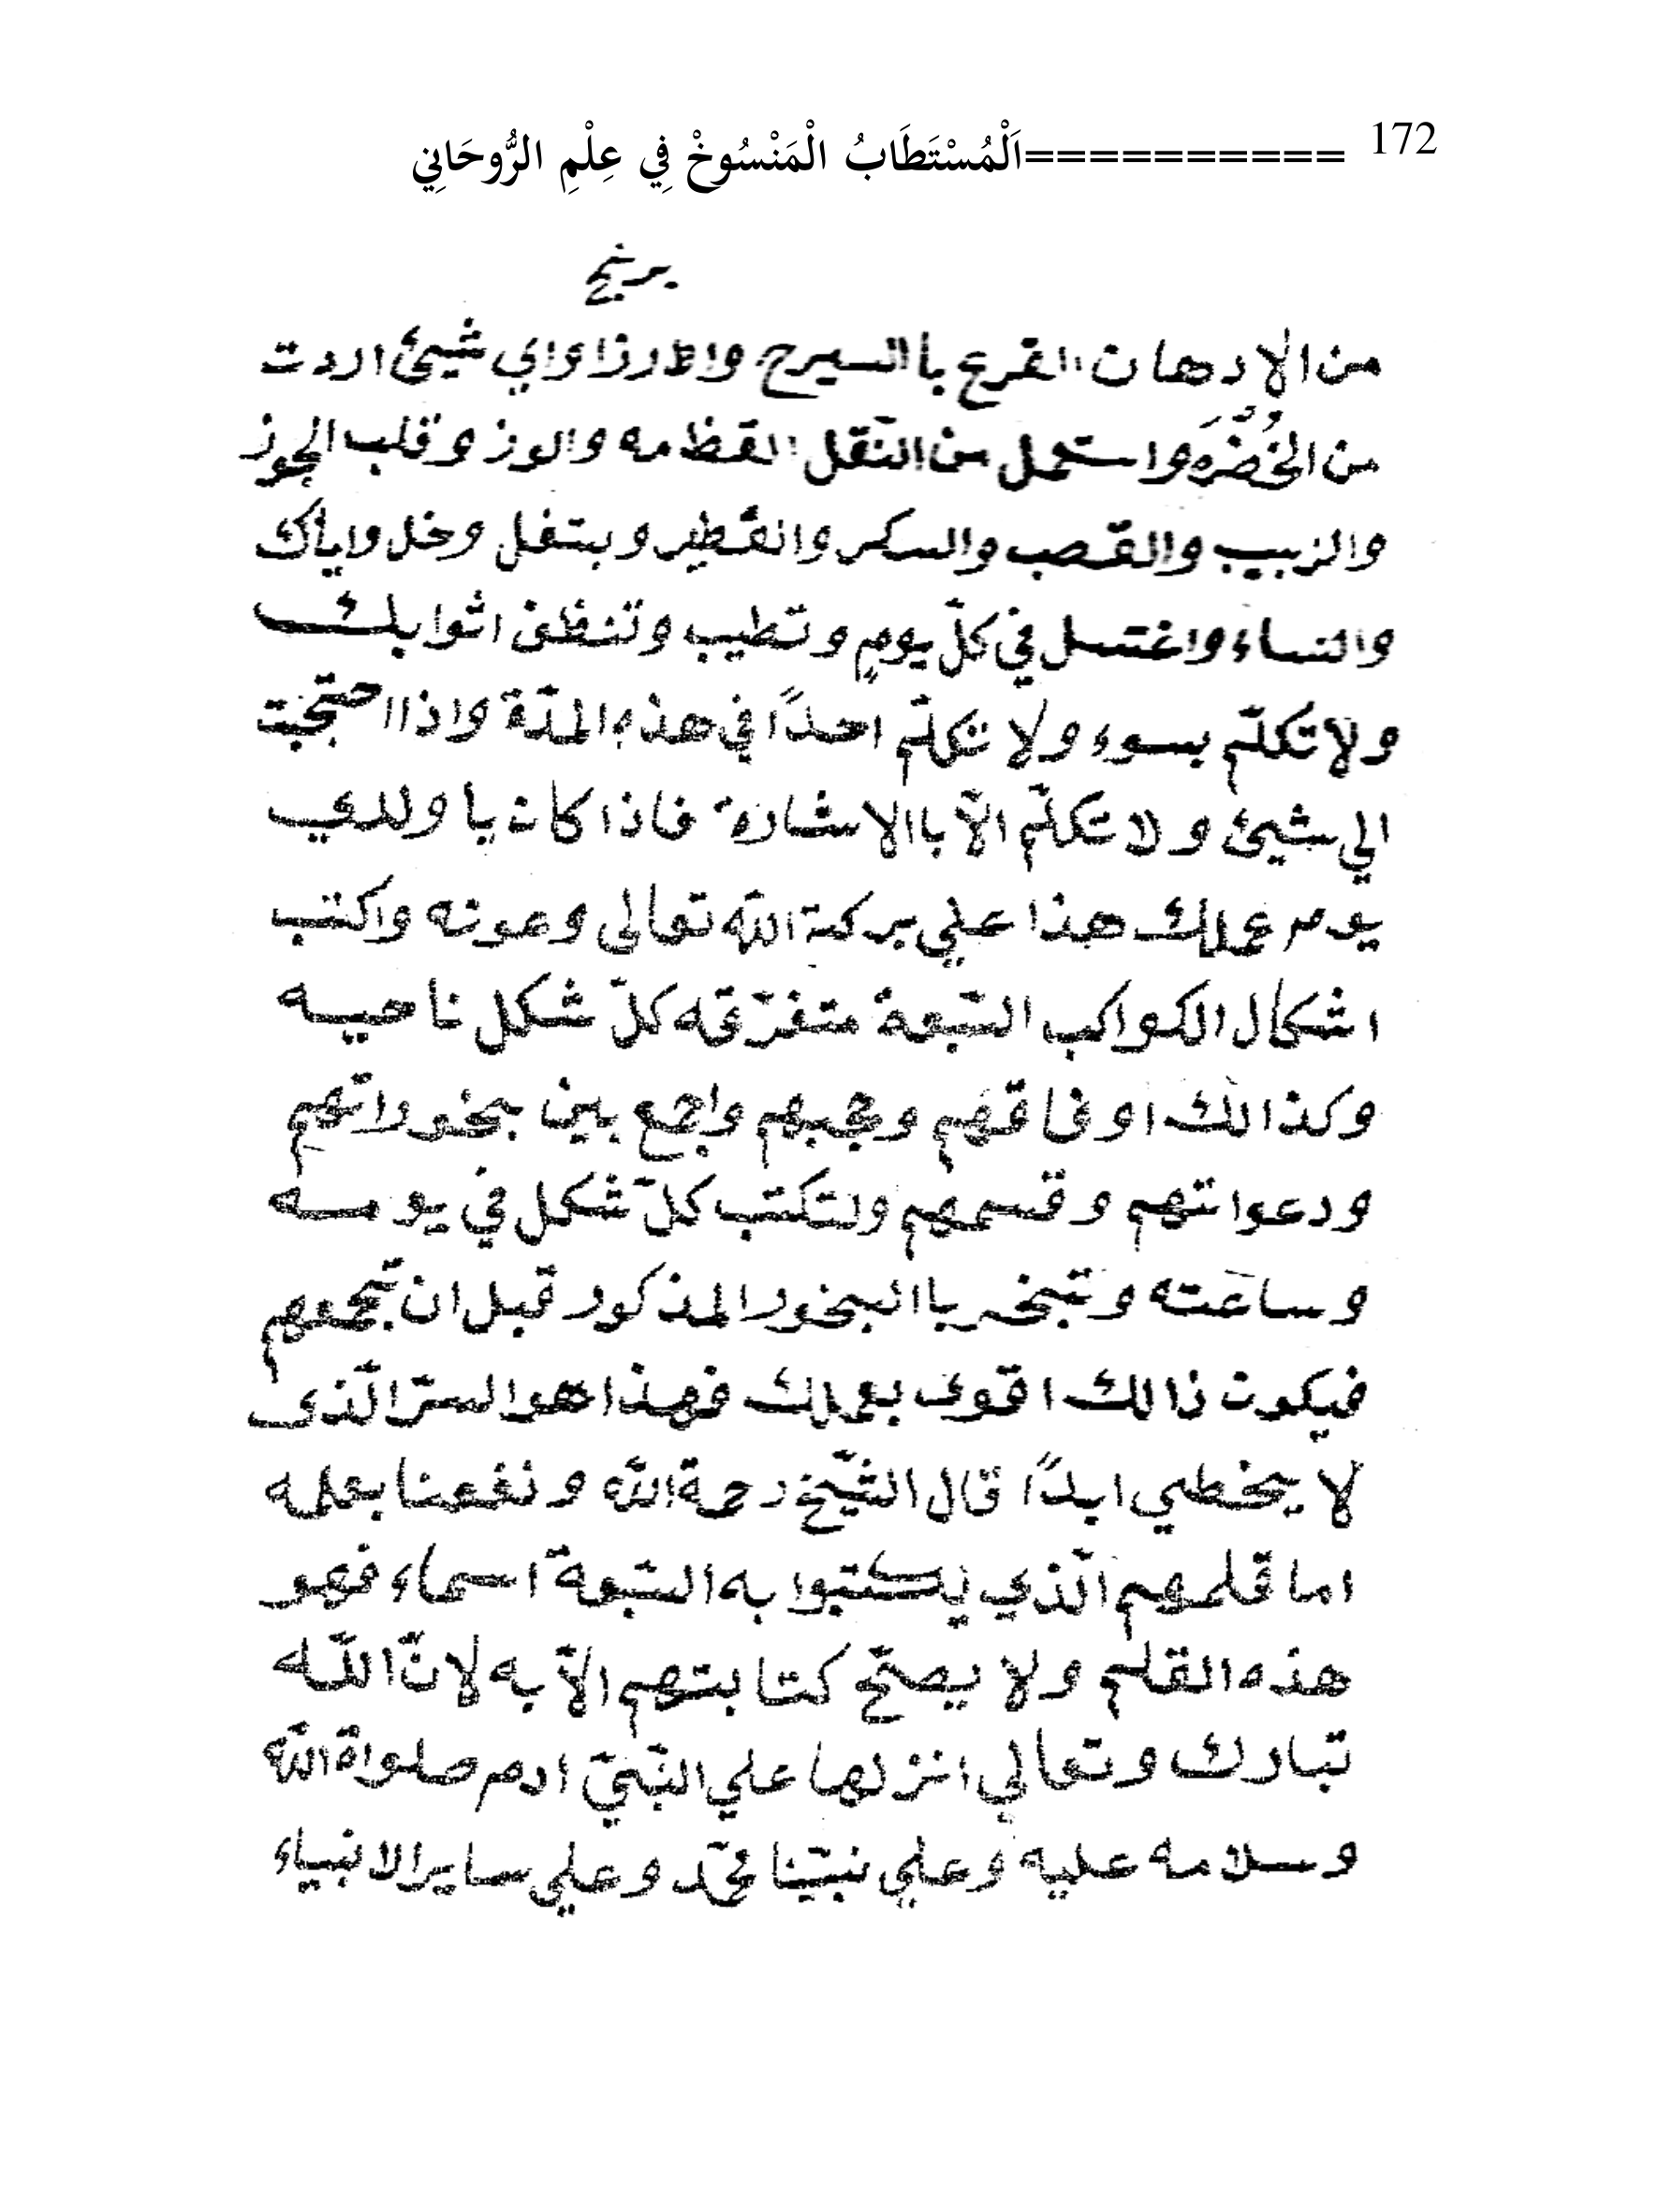 172 ==========اَلْمُسْتَطَابُ الْمَنْسُوخْ فِي عِلْمِ الرُّوحَانِي
برنج
من الادهان القرع باالسيرج والارزا واي شيئ اردت
من الخُضْرَه واستعمل من النّقل القظامه والوز وقلب الجوز
والزبيب والقصب والسكر والقطير وبتفل وخل واياك
والنساء واغتسل في كلّ يومٍ وتطيب وتنظف اثوابك
ولا تكلّم بسوء ولا تكلّم احدًا في هذه المدّة واذا احتجت
الي شيئ ولا تكلّم الاّ باالاشارة فاذا كان يا ولدي
يوم عملك هذا علي بركة الله تعالى وعونه واكتب
اشكال الكواكب السّبعة متفرّقه كلّ شكل ناحيه
وكذالك اوفاقهم وحجبهم واجمع بين بخوراتهم
ودعواتهم وقسمهم ولتكتب كلّ شكل في يومه
وساعته وتبخر باالبخور المذكور قبل ان تجمعهم
فيكون ذالك اقوي بعملك فهذا هو السرّ الّذى
لا يخطي ابدًا قال الشّيخ رحمة الله ونفعنا بعلمه
اما قلمهم الّذي يكتبوا به السّبعة اسماء فهو
هذه القلم ولا يصحّ كتابتهم الاّ به لانّ اللّه
تبارك وتعالي انزلها علي النّبيّ ادم صلواة الله
وسلامه عليه وعلي نبيّنا محمّد وعلي ساير الانبياء